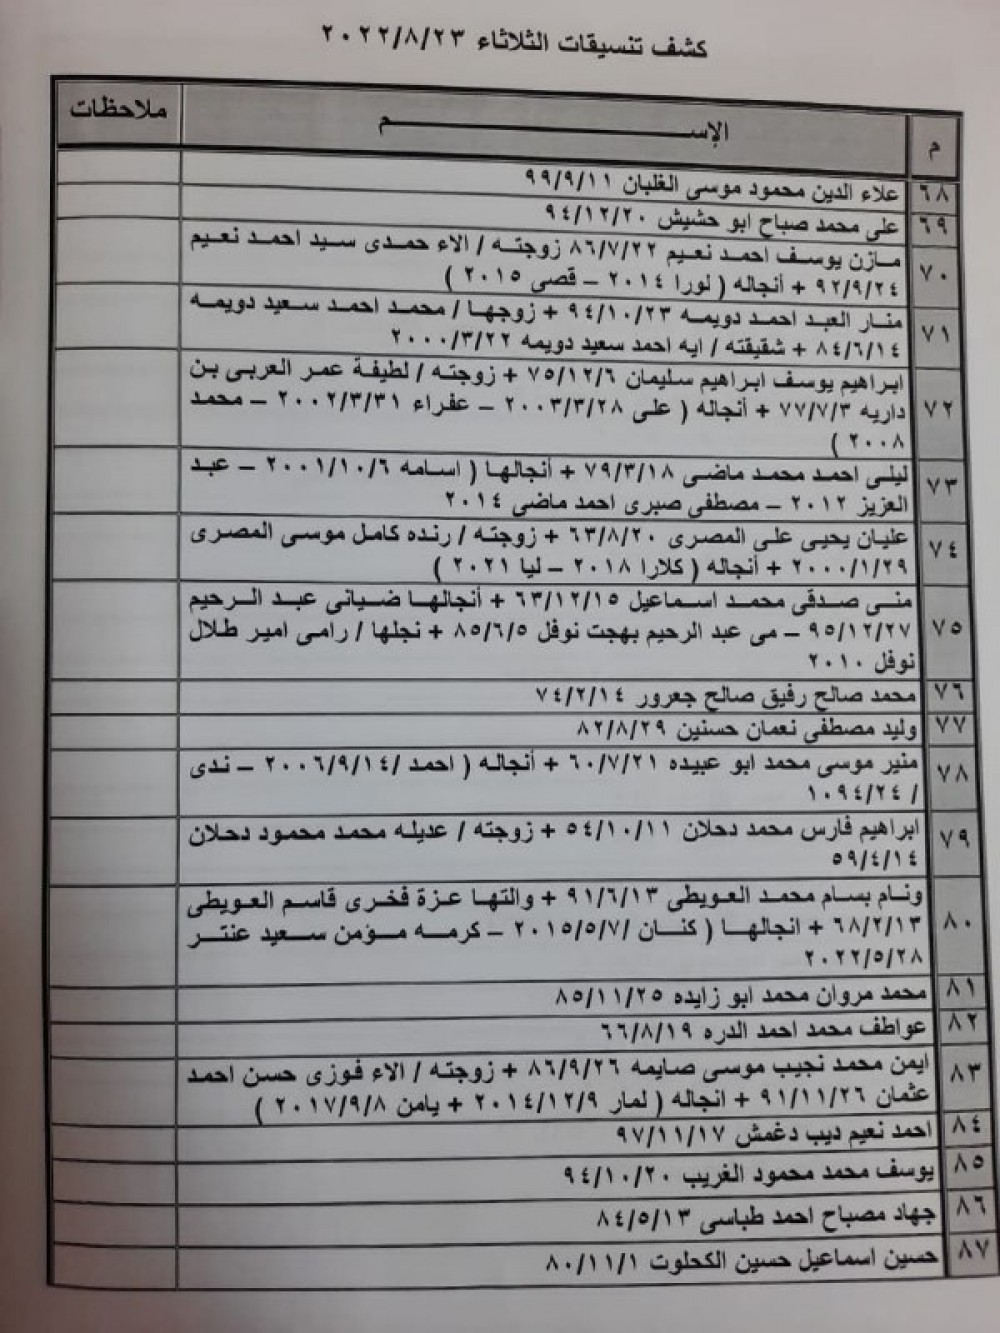 كشف تنسيقات الثلاثاء ٢٠٢٢/٨/٢٣
م الإســـــــــــم ملاحظات
٦٨ علاء الدين محمود موسى الغلبان ٩٩/٩/١١
٦٩ على محمد صباح ابو حشيش ٩٤/١٢/٢٠
٧٠ مازن يوسف احمد نعيم ٨٦/٧/٢٢ زوجته / الاء حمدى سيد احمد نعيم
٩٢/٩/٢٤ + أنجاله ( لورا ٢٠١٤ – قصى ٢٠١٥ )
٧١ منار العبد احمد دويمه ٩٤/١٠/٢٣ + زوجها / محمد احمد سعيد دويمه
٨٤/٦/١٤ + شقيقته / ايه احمد سعيد دويمه ٢٠٠٠/٣/٢٢
٧٢ ابراهيم يوسف ابراهيم سليمان ٧٥/١٢/٦ + زوجته / لطيفة عمر العربى بن
داريه ٧٧/٧/٣ + أنجاله ( على ٢٠٠٣/٣/٢٨ – عفراء ٢٠٠٢/٣/٣١ – محمد
٢٠٠٨ )
٧٣ ليلى احمد محمد ماضى ٧٩/٣/١٨ + أنجالها ( اسامه ٢٠٠١/١٠/٦ – عبد
العزيز ٢٠١٢ – مصطفى صبرى احمد ماضى ٢٠١٤
٧٤ عليان يحيى على المصرى ٦٣/٨/٢٠ + زوجته / رنده كامل موسى المصرى
٢٠٠٠/١/٢٩ + أنجاله ( كلارا ٢٠١٨ – ليا ٢٠٢١ )
٧٥ منى صدقى محمد اسماعيل ٦٣/١٢/١٥ + أنجالها ضيانى عبد الرحيم
٩٥/١٢/٢٧ – مى عبد الرحيم بهجت نوفل ٨٥/٦/٥ + نجلها / رامى امير طلال
نوفل ٢٠١٠
٧٦ محمد صالح رفيق صالح جعرور ٧٤/٢/١٤
٧٧ وليد مصطفى نعمان حسنين ٨٢/٨/٢٩
٧٨ منير موسى محمد ابو عبيده ٦٠/٧/٢١ + أنجاله ( احمد /٢٠٠٦/٩/١٤ – ندى
/ ١٠٩٤/٢٤
٧٩ ابراهيم فارس محمد دحلان ٥٤/١٠/١١ + زوجته / عديله محمد محمود دحلان
٥٩/٤/١٤
٨٠ ونام بسام محمد العويطى ٩١/٦/١٣ + والتها عزة فخرى قاسم العويطى
٦٨/٢/١٣ + انجالها ( كنان /٢٠١٥/٥/٧ – كرمه مؤمن سعيد عنتر
٢٠٢٢/٥/٢٨
٨١ محمد مروان محمد ابو زايده ٨٥/١١/٢٥
٨٢ عواطف محمد احمد الدره ٦٦/٨/١٩
٨٣ ايمن محمد نجيب موسى صايمه ٨٦/٩/٢٦ + زوجته / الاء فوزى حسن احمد
عثمان ٩١/١١/٢٦ + انجاله ( لمار ٢٠١٤/١٢/٩ + يامن ٢٠١٧/٩/٨ )
٨٤ احمد نعيم ديب دغمش ٩٧/١١/١٧
٨٥ يوسف محمد محمود الغريب ٩٤/١٠/٢٠
٨٦ جهاد مصباح احمد طباسى ٨٤/٥/١٣
٨٧ حسين اسماعيل حسين الكحلوت ٨٠/١١/١